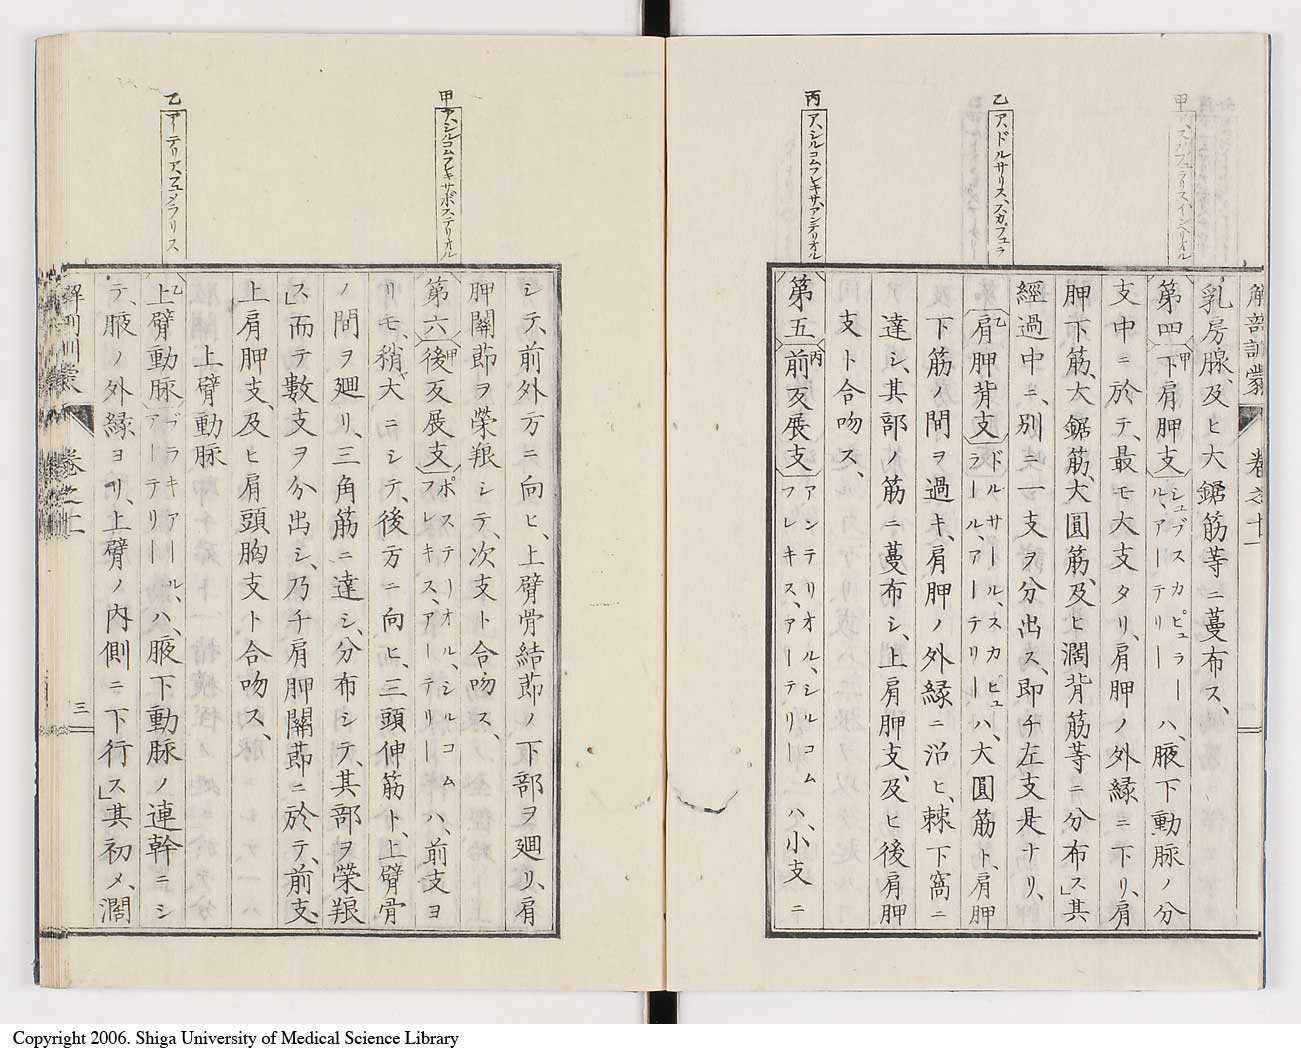 甲
ア、スカプラリス、インヘリオル
乙
ア、ドルサリス、スカプュラ
丙
ア、シルコムフレキサ、アンテリオル
解剖訓蒙
卷之十一
乳房腺、及ヒ大鋸筋等ニ蔓布ス、
第四 甲下肩胛支 シュブスカピュラール、アーテリー ハ、腋下動脉ノ分
支中ニ於テ、最モ大支タリ、肩胛ノ外緣ニ下リ、肩
胛下筋、大鋸筋、大圓筋、及ヒ濶背筋等ニ分布ス」其
經過中ニ、別ニ一支ヲ分出ス、即チ左支是ナリ、
乙肩胛背支 ドルサール、スカピュラール、アーテリー ハ、大圓筋ト、肩胛
下筋ノ間ヲ過キ、肩胛ノ外緣ニ沿ヒ、棘下窩ニ
達シ、其部ノ筋ニ蔓布シ、上肩胛支、及ヒ後肩胛
支ト合吻ス、
第五 丙前反展支 アンテリオル、シルコムフレキス、アーテリー ハ、小支ニ
甲
ア、シルコムフレキサ、ポステリオル
乙
アーテリア、フュメラリス
シテ、前外方ニ向ヒ、上臂骨結節ノ下部ヲ廻リ、肩
胛關節ヲ榮養シテ、次支ト合吻ス、
第六 甲後反展支 ポステーオル、シルコムフレキス、アーテリー ハ、前支ヨ
リモ、稍大ニシテ、後方ニ向ヒ、三頭伸筋ト、上臂骨
ノ間ヲ廻リ、三角筋ニ達シ、分布シテ、其部ヲ榮養
ス」而テ數支ヲ分出シ、乃チ肩胛關節ニ於テ、前支、
上肩胛支、及ヒ肩頭胸支ト合吻ス、
上臂動脉
乙上臂動脉 ブラキアール、アーテリー ハ、腋下動脉ノ連幹ニシ
テ、腋ノ外緣ヨリ、上臂ノ内側ニ下行ス」其初メ、濶
解剖訓蒙
卷之十一
三
Copyright 2006. Shiga University of Medical Science Library